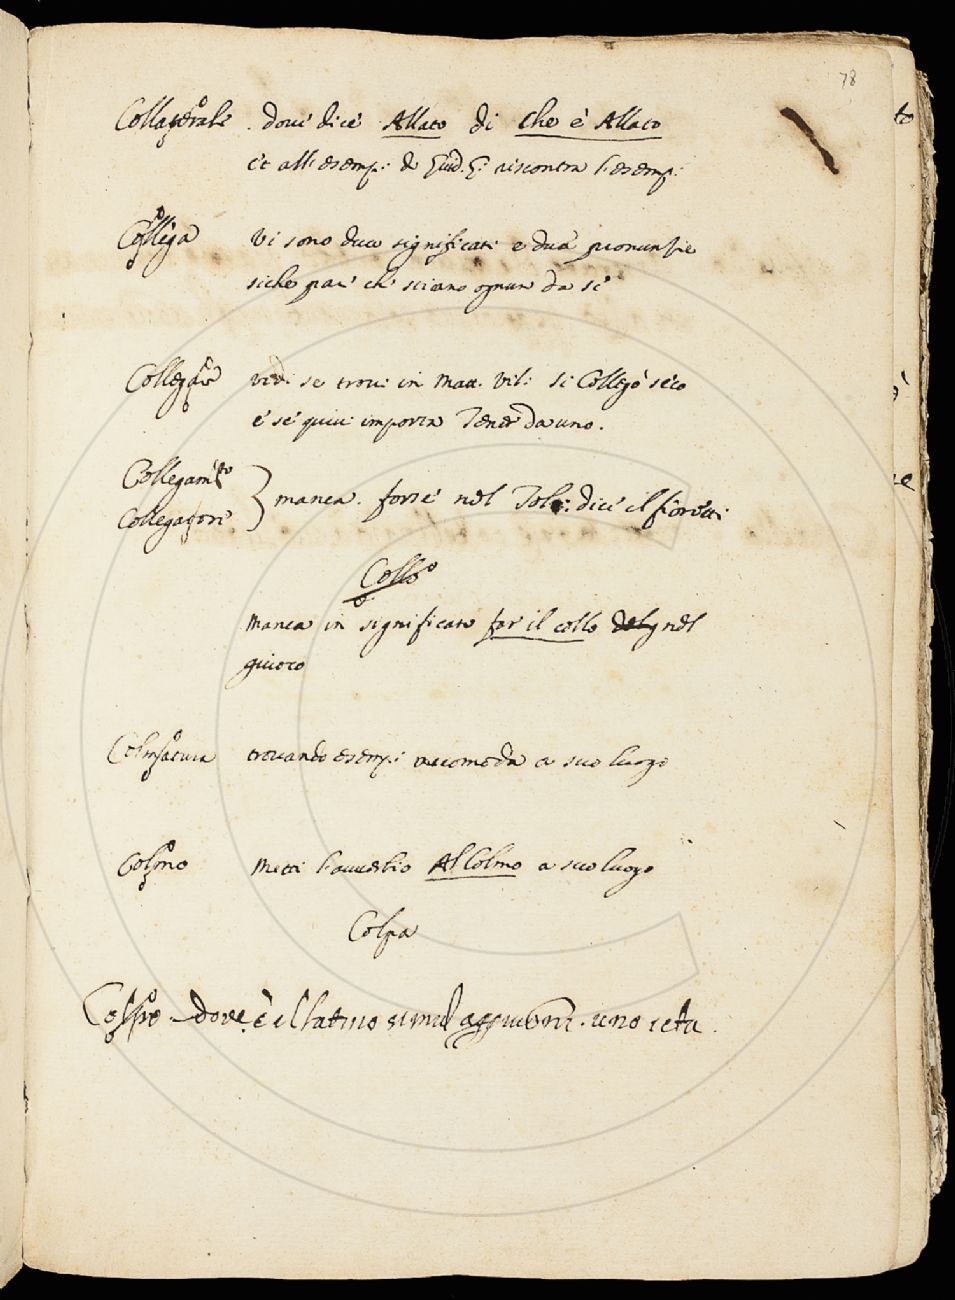 78
Collaterale dove dice Allato di che è Allato
et all esemp: di Guid. G. riscontra l'esemp:
Collega vi sono due significati e due pronunzie
siche par che sieno ognun da sè
Collegare vedi se trovi in Matt. Vil: si Collegò seco
e se quivi importa Tener da uno.
Collegamto
Collegatore } manca. forse nel Tol: dice il fioretti
Collo
manca in significato far il collo nel
giuoco
Colmatura trovando esemp: raccomoda a suo luogo
Colmo metti l'avverbio Al Colmo a suo luogo
Colpa
dove è il latino simul aggiugni. uno ictu